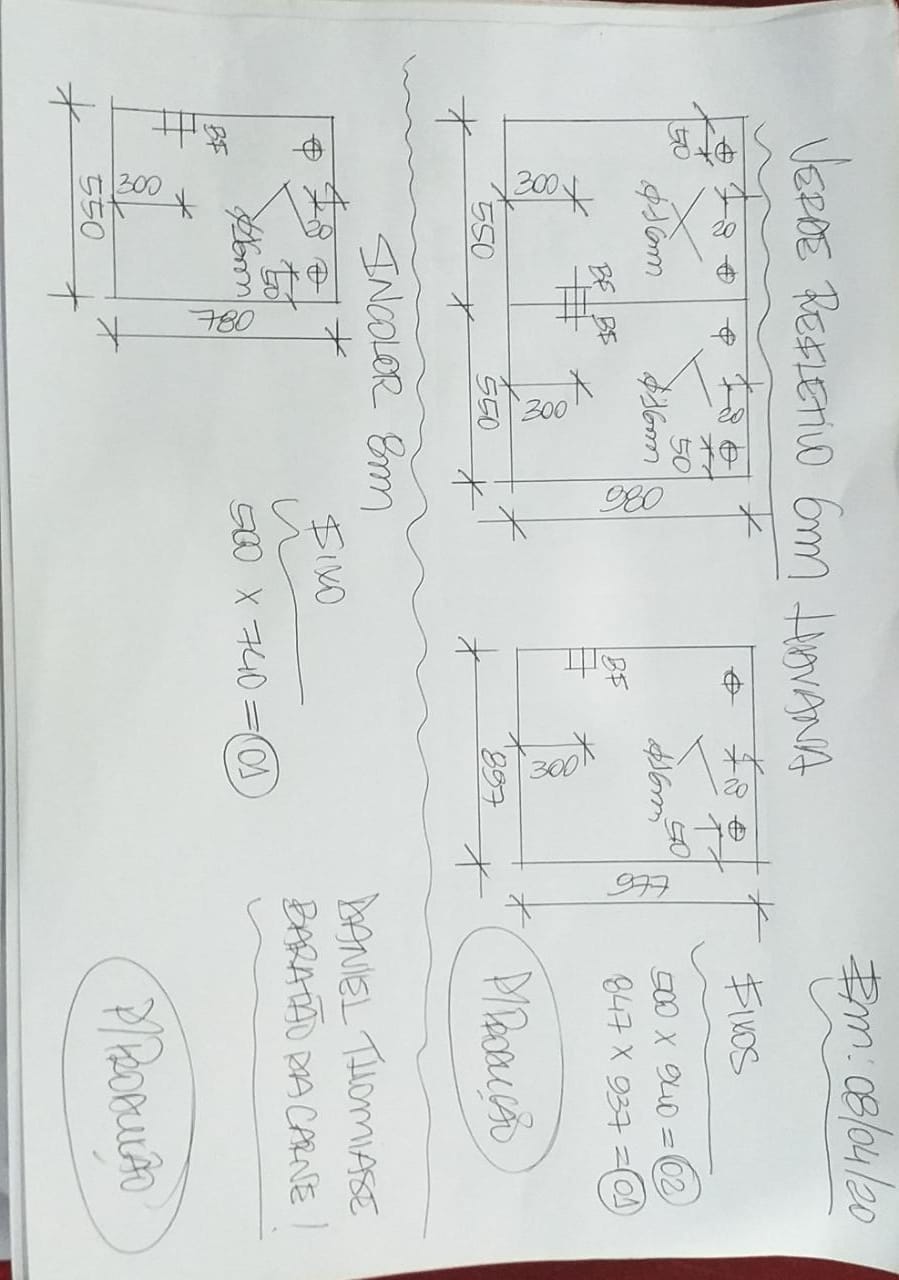 Em: 08/04/20
VERDE REFLETIVO 6mm HAVANA
50
20
Φ16mm
300
BF
BF
20
Φ16mm
50
300
550
550
980
BF
20
Φ16mm
50
300
897
977
FIXOS
500 X 940 = 02
847 X 937 = 01
P/PRODUÇÃO
INCOLOR 8mm
BF
20
Φ16mm
50
300
550
780
FIXO
500 X 740 = 01
DANIEL THOMIASE
BARATÃO DA CARNE!
P/PRODUÇÃO